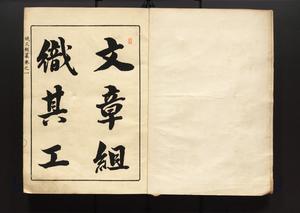 文章組
織其工